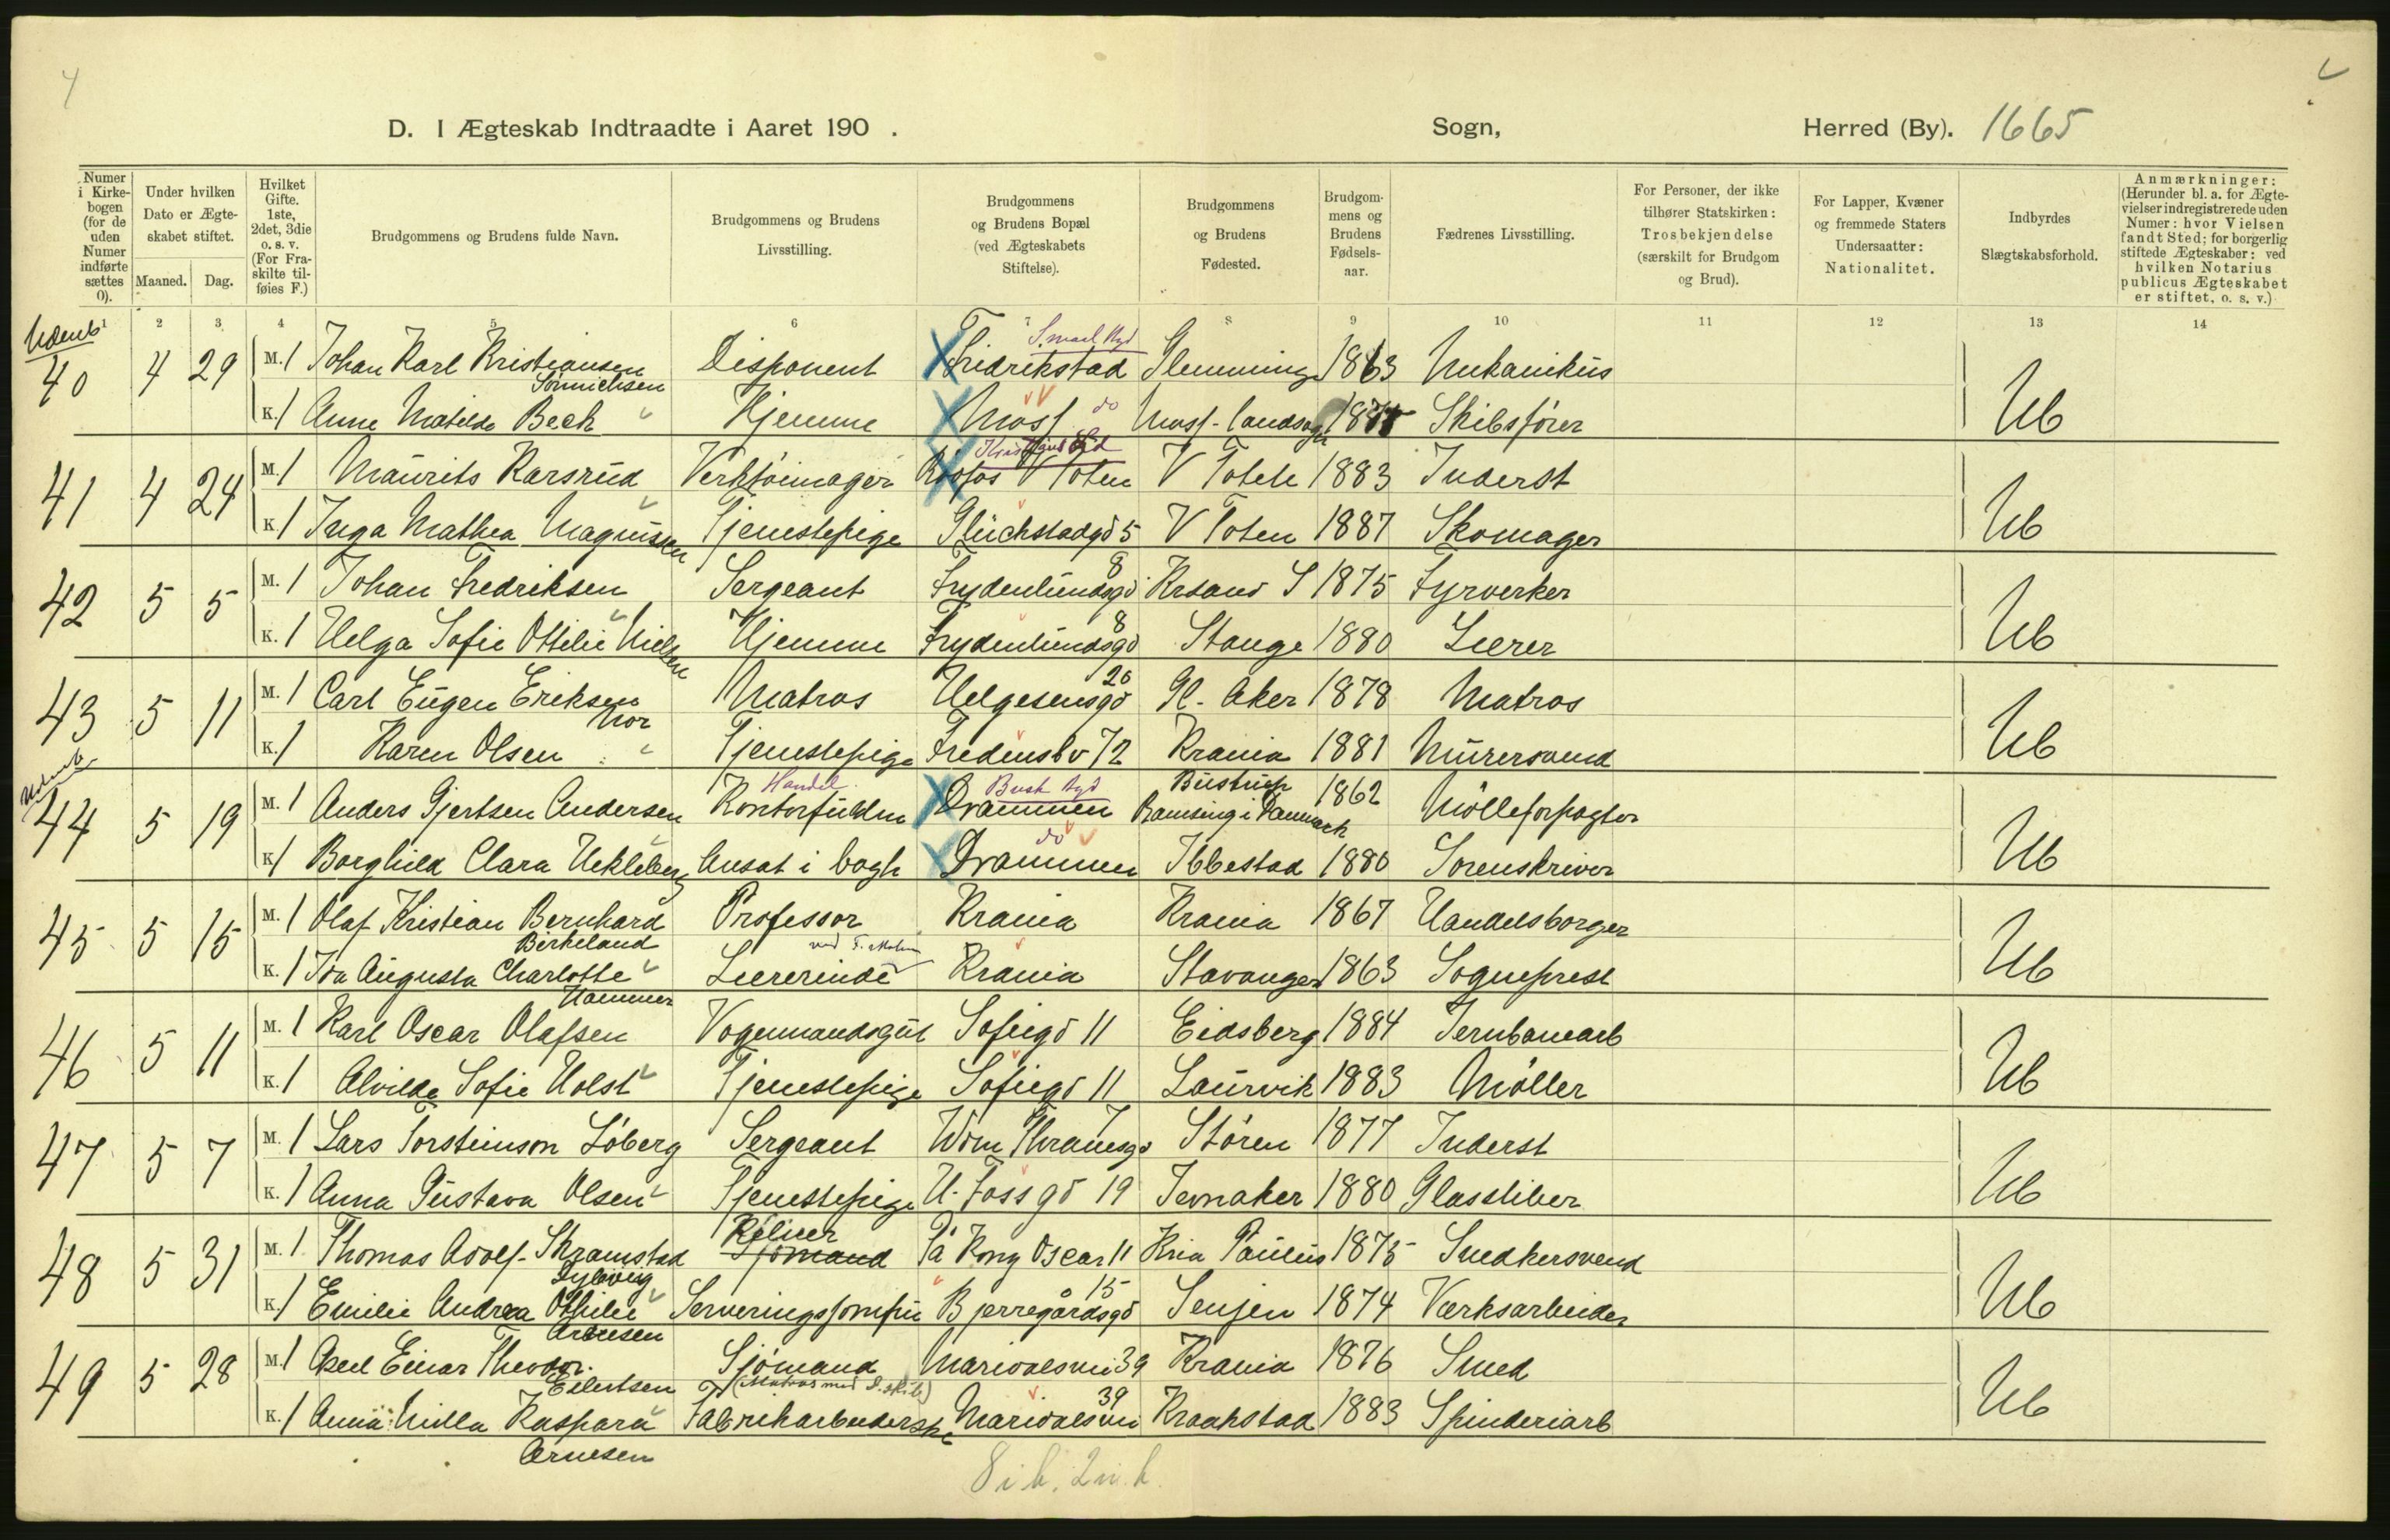 4
D. I Ægteskab Indtraadte i Aaret 190 . Sogn, Herred (By). 1665
Numer i Kirkebogen (for de uden Numer indførte sættes 0).
Under hvilken Dato er Ægteskabet stiftet.
Maaned. Dag.
Hvilket Gifte. 1ste, 2det, 3die o. s. v. (For Fraskilte tilføies F.)
Brudgommens og Brudens fulde Navn.
Brudgommens og Brudens Livsstilling.
Brudgommens og Brudens Bopæl (ved Ægteskabets Stiftelse).
Brudgommens og Brudens Fødested.
Brudgommens og Brudens Fødselsaar.
Fædrenes Livsstilling.
For Personer, der ikke tilhører Statskirken: Trosbekjendelse (særskilt for Brudgom og Brud).
For Lapper, Kvæner og fremmede Staters Undersaatter: Nationalitet.
Indbyrdes Slægtskabsforhold.
Anmærkninger: (Herunder bl. a. for Ægtevielser indregistrerede uden Numer: hvor Vielsen fandt Sted; for borgerlig stiftede Ægteskaber: ved hvilken Notarius publicus Ægteskabet er stiftet, o. s. v.)
1 2 3 4 5 6 7 8 9 10 11 12 13 14
Udenb
40 4 29 M. 1 Johan Karl Kristiansen Sönnichsen Disponent Fredrikstad Glemminge 1863 Mekanikus Ub
K. 1 Anne Matilde Beck Hjemme Moss do Moss landsogn Skibsfører
41 4 24 M. 1 Maurits Karsrud Verktøimager V Toten V Toten 1883 Inderst Ub
K. 1 Inga Mathea Magnussen Tjenestepige Glückstadgd 5 V Toten 1887 Skomager
42 5 5 M. 1 Johan Fredriksen Sergeant Frydenlundsgd 8 Krsand S 1875 Fyrverker Ub
K. 1 Helga Sofie Ottilie Nielsen Hjemme Frydenlundsgd 8 Stange 1880 Lærer
43 5 11 M. 1 Carl Eugen Eriksen Matros Helgesensgd 20 Gl. Aker 1878 Matros Ub
K. 1 Karen Olsen Mor Tjenestepige Fredensbv 72 Krania 1881 Murersvend
Udenb
44 5 19 M. 1 Anders Gjertsen Andersen Handel Kontorfuldm Busk Byd Drammen Bustrup Ramsing i Danmark 1862 Mølleforpagter Ub
K. 1 Borghild Clara Uckleberg Ansat i bogh do Drammen Ibbestad 1880 Sorenskriver
45 5 15 M. 1 Olaf Kristian Bernhard Birkeland Professor Krania Krania 1867 Handelsborger Ub
K. 1 Ida Augusta Charlotte Hammer Lærerinde Krania Stavanger 1863 Sogneprest
46 5 11 M. 1 Karl Oscar Olafsen Vognmandsgut Sofiegd 11 Eidsberg 1884 Jernbanearb Ub
K. 1 Alvilde Sofie Holst Tjenestepige Sofiegd 11 Laurvik 1883 Møller
47 5 7 M. 1 Lars Torsteinson Løberg Sergeant Wom Thranesgd 7 Støren 1877 Inderst Ub
K. 1 Anna Gustava Olsen Tjenestepige U. Fossgd 19 Jevnaker 1880 Glassliber
48 5 31 M. 1 Thomas Adolf Skramstad Kelner Sjømand På Kong Oscar 11 Kria Paulus 1875 Snedkersvend Ub
K. 1 Emilie Andrea Othilie Sylovig Arnesen Serveringsjomfru Bjerregårdsgd 15 Senjen 1874 Værksarbeider
49 5 28 M. 1 Axel Einar Theodor Eilertsen Sjømand (Matros med D.skib) Maridalsvei 39 Krania 1876 Smed Ub
K. 1 Anna Milla Kaspara Arnesen Fabrikarbeiderske Maridalsvei 39 Kraakstad 1883 Spinderiarb
8 i b. 2 u. b.